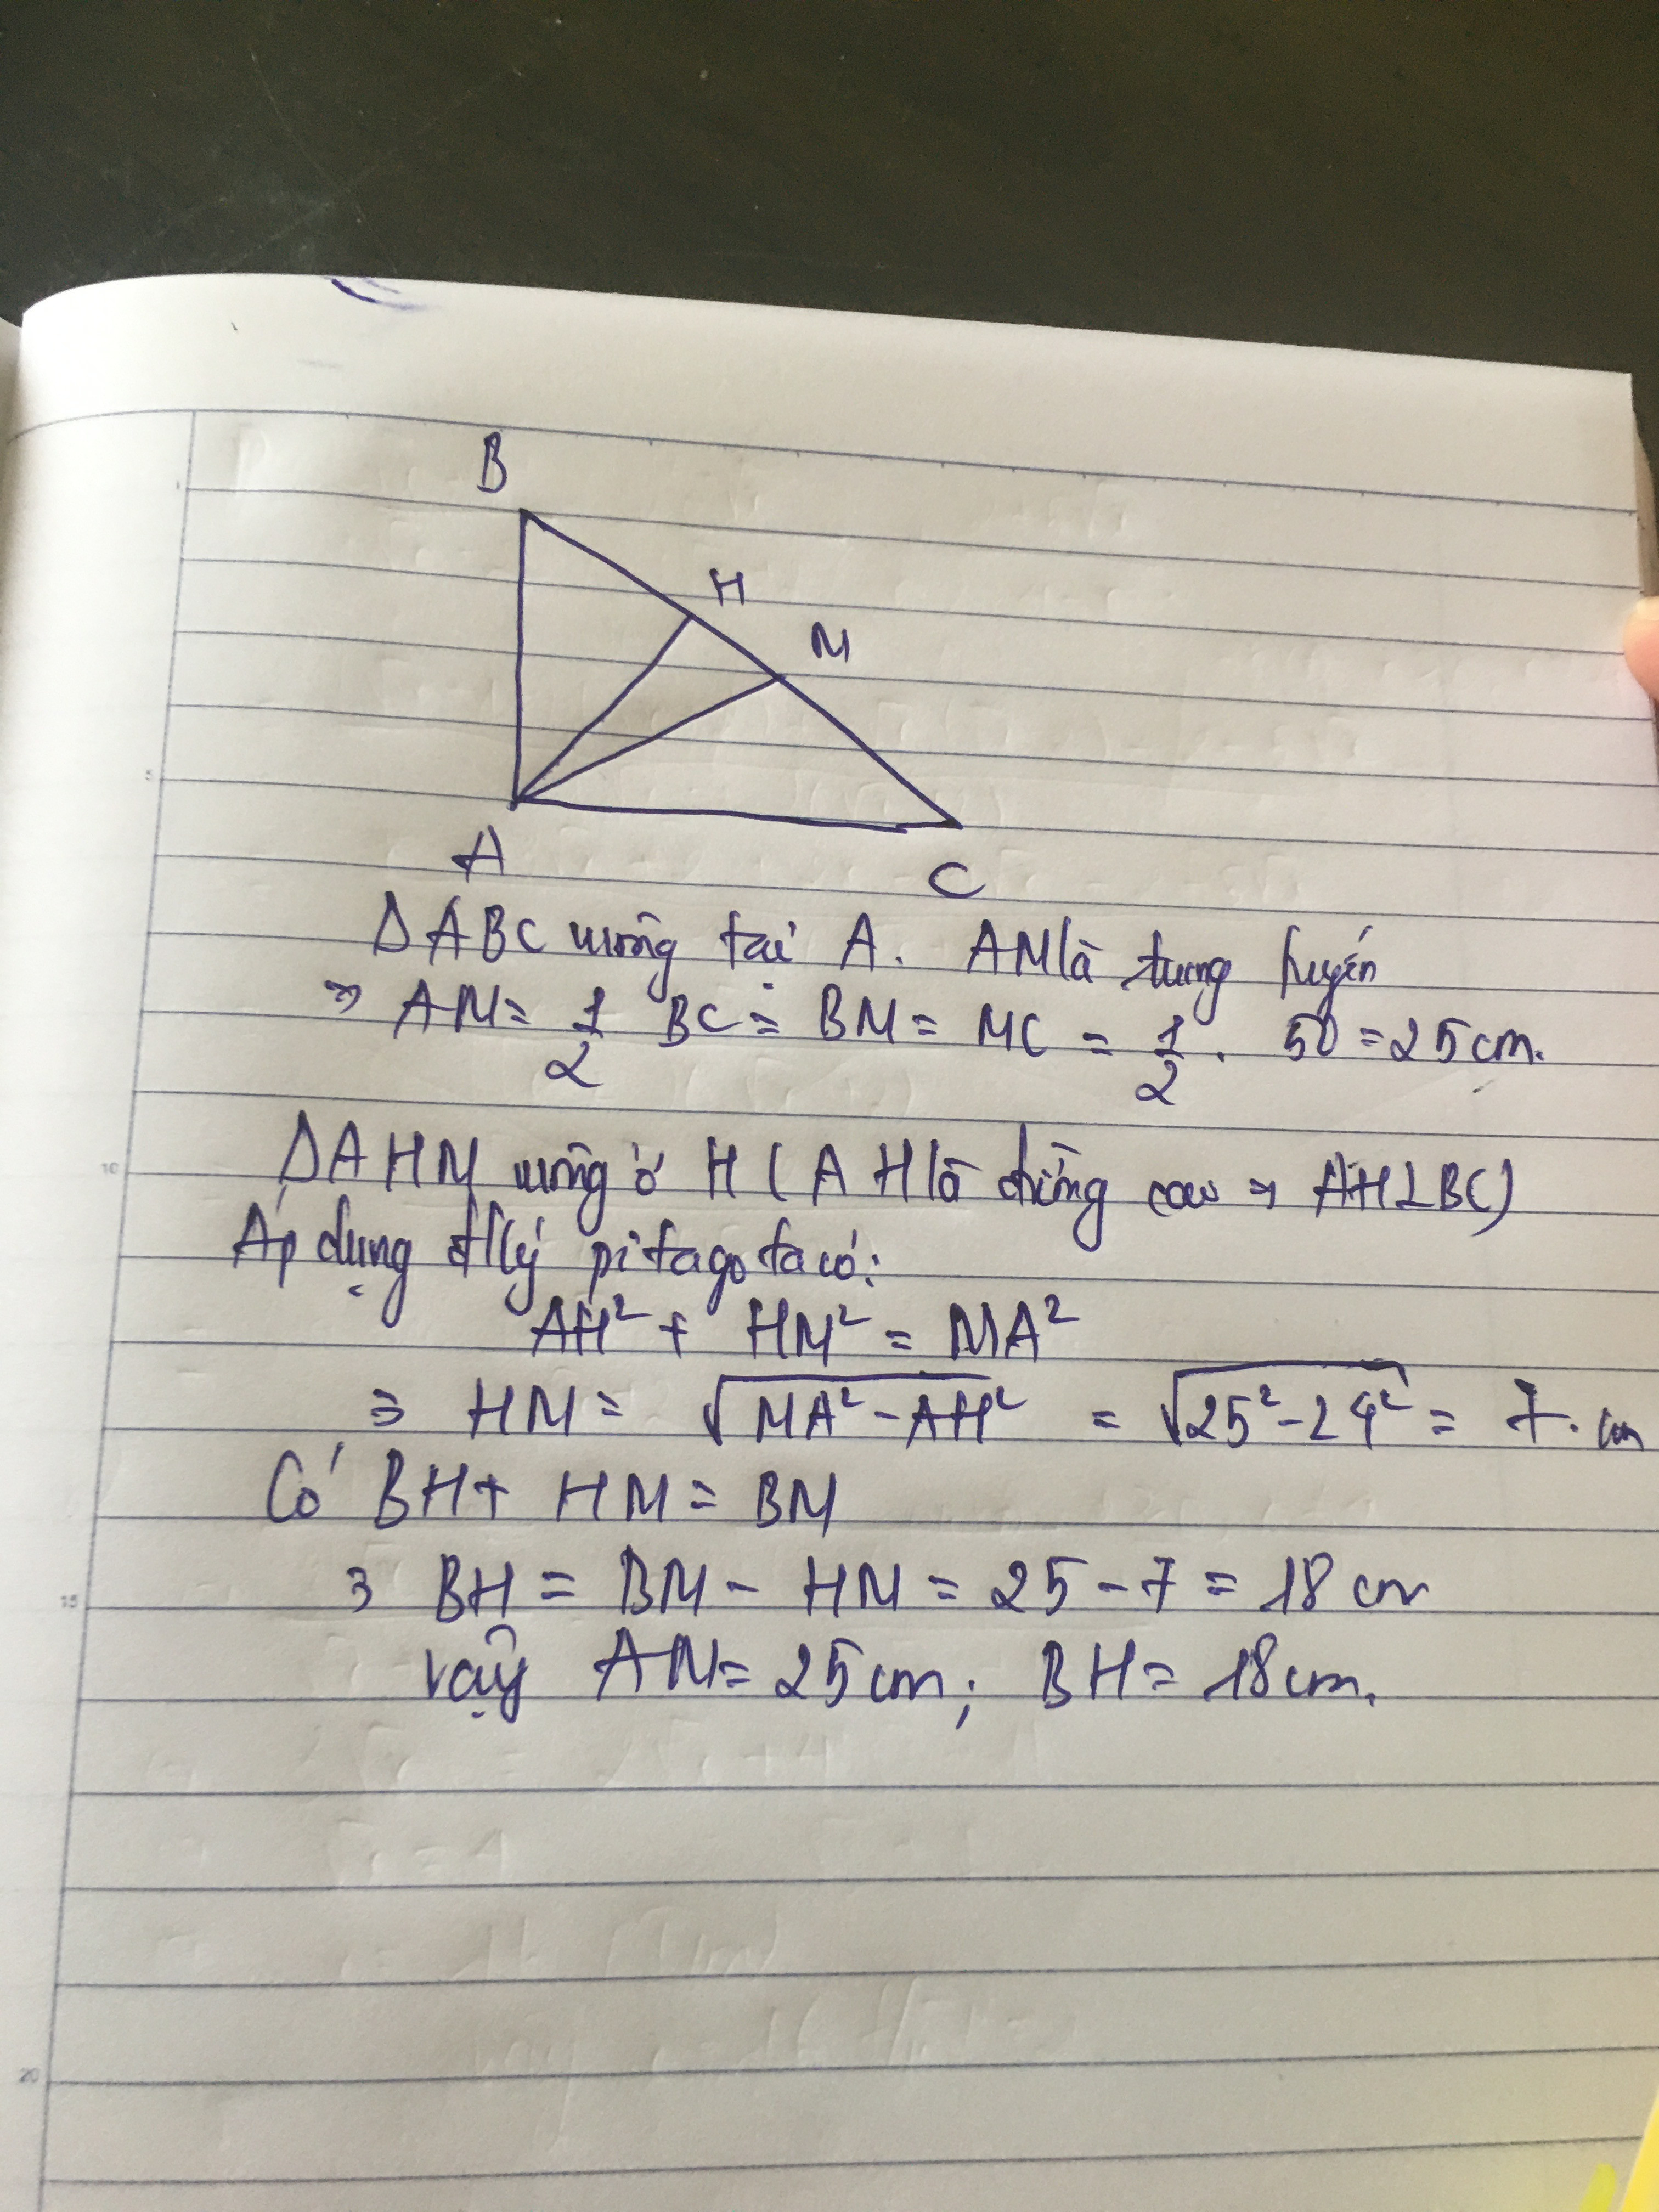 B
H
M
A
C
ΔABC vuông tại A. AM là trung tuyến
⇒ AM = 1/2 BC = BM = MC = 1/2 . 50 = 25 cm.
ΔAHM vuông ở H (AH là đường cao ⇒ AH ⊥ BC)
Áp dụng đ/lý pitago ta có:
AH² + HM² = MA²
⇒ HM = √(MA² - AH²) = √(25² - 24²) = 7 cm
Có BH + HM = BM
⇒ BH = BM - HM = 25 - 7 = 18 cm
Vậy AM = 25 cm; BH = 18 cm.
5
10
15
20